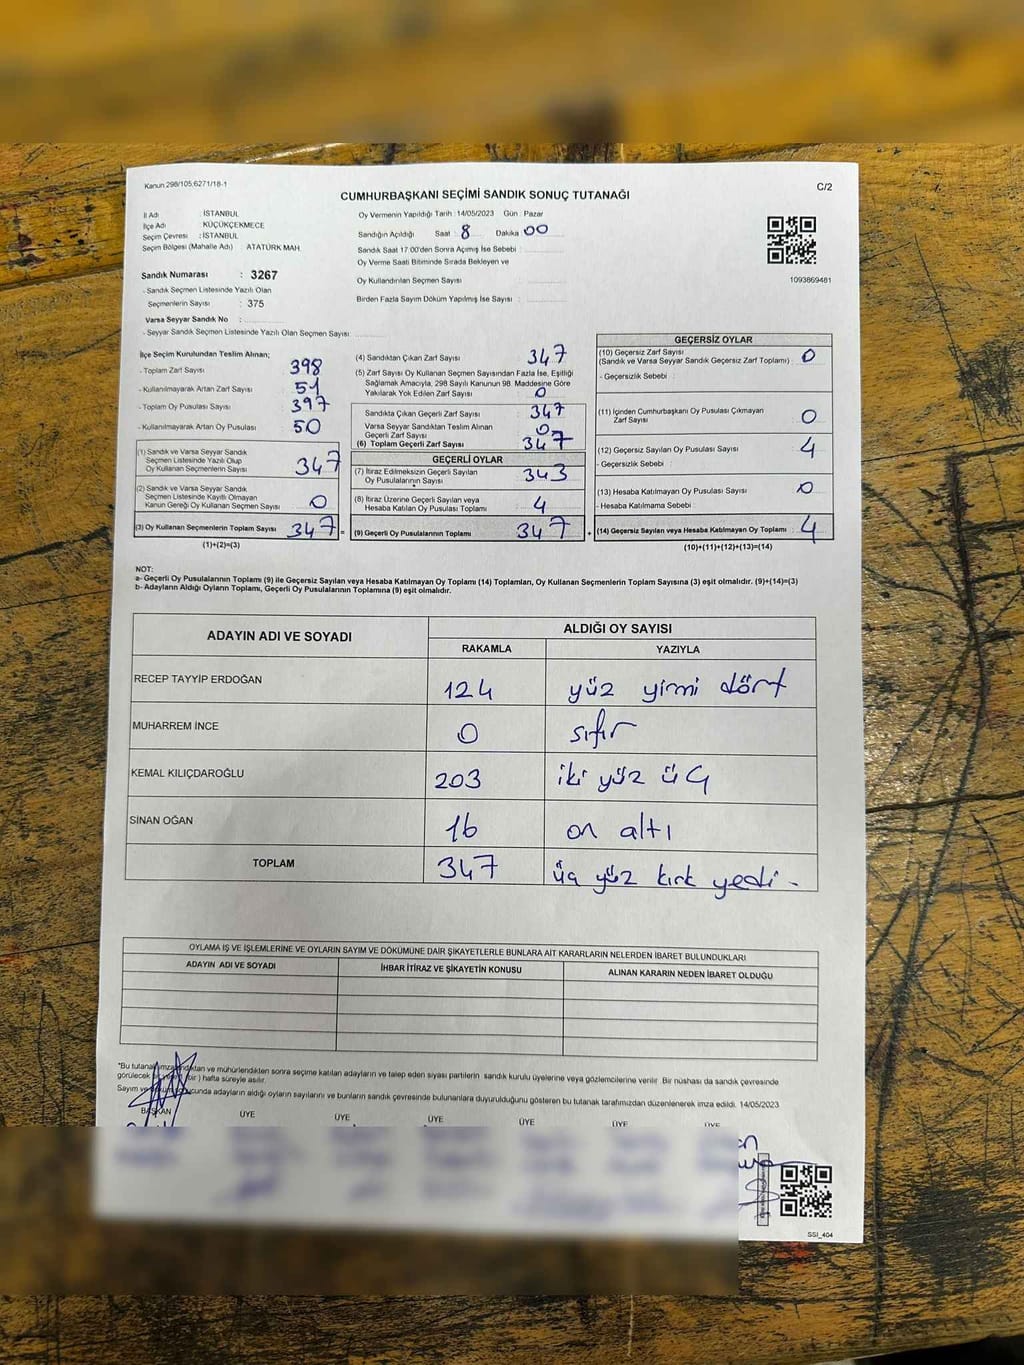 Kanun 298/105;6271/18-1
C/2
CUMHURBAŞKANI SEÇİMİ SANDIK SONUÇ TUTANAĞI
İl Adı : İSTANBUL
İlçe Adı : KÜÇÜKÇEKMECE
Seçim Çevresi : İSTANBUL
Seçim Bölgesi (Mahalle Adı) : ATATÜRK MAH.
Sandık Numarası : 3267
- Sandık Seçmen Listesinde Yazılı Olan
Seçmenlerin Sayısı : 375
Varsa Seyyar Sandık No :
- Seyyar Sandık Seçmen Listesinde Yazılı Olan Seçmen Sayısı:
Oy Vermenin Yapıldığı Tarih : 14/05/2023 Gün : Pazar
Sandığın Açıldığı Saat : 8 Dakika : 00
Sandık Saat 17.00'den Sonra Açılmış İse Sebebi :
Oy Verme Saati Bitiminde Sırada Bekleyen ve
Oy Kullandırılan Seçmen Sayısı :
Birden Fazla Sayım Döküm Yapılmış İse Sayısı :
1093869481
İlçe Seçim Kurulundan Teslim Alınan;
- Toplam Zarf Sayısı : 398
- Kullanılmayarak Artan Zarf Sayısı : 51
- Toplam Oy Pusulası Sayısı : 397
- Kullanılmayarak Artan Oy Pusulası : 50
(1) Sandık ve Varsa Seyyar Sandık
Seçmen Listesinde Yazılı Olup
Oy Kullanan Seçmenlerin Sayısı : 347
(2) Sandık ve Varsa Seyyar Sandık
Seçmen Listesinde Kayıtlı Olmayan
Kanun Gereği Oy Kullanan Seçmen Sayısı : 0
(3) Oy Kullanan Seçmenlerin Toplam Sayısı : 347 =
(1)+(2)=(3)
(4) Sandıktan Çıkan Zarf Sayısı : 347
(5) Zarf Sayısı Oy Kullanan Seçmen Sayısından Fazla İse, Eşitliği
Sağlamak Amacıyla, 298 Sayılı Kanunun 98. Maddesine Göre
Yakılarak Yok Edilen Zarf Sayısı : 0
Sandıkta Çıkan Geçerli Zarf Sayısı : 347
Varsa Seyyar Sandıktan Teslim Alınan
Geçerli Zarf Sayısı : 0
(6) Toplam Geçerli Zarf Sayısı : 347
GEÇERLİ OYLAR
(7) İtiraz Edilmeksizin Geçerli Sayılan
Oy Pusulalarının Sayısı : 343
(8) İtiraz Üzerine Geçerli Sayılan veya
Hesaba Katılan Oy Pusulası Toplamı : 4
(9) Geçerli Oy Pusulalarının Toplamı : 347 +
GEÇERSİZ OYLAR
(10) Geçersiz Zarf Sayısı
(Sandık ve Varsa Seyyar Sandık Geçersiz Zarf Toplamı) : 0
- Geçersizlik Sebebi :
(11) İçinden Cumhurbaşkanı Oy Pusulası Çıkmayan
Zarf Sayısı : 0
(12) Geçersiz Sayılan Oy Pusulası Sayısı : 4
- Geçersizlik Sebebi :
(13) Hesaba Katılmayan Oy Pusulası Sayısı : 0
- Hesaba Katılmama Sebebi :
(14) Geçersiz Sayılan veya Hesaba Katılmayan Oy Toplamı : 4
(10)+(11)+(12)+(13)=(14)
NOT:
a- Geçerli Oy Pusulalarının Toplamı (9) ile Geçersiz Sayılan veya Hesaba Katılmayan Oy Toplamı (14) Toplamları, Oy Kullanan Seçmenlerin Toplam Sayısına (3) eşit olmalıdır. (9)+(14)=(3)
b- Adayların Aldığı Oyların Toplamı, Geçerli Oy Pusulalarının Toplamına (9) eşit olmalıdır.
ADAYIN ADI VE SOYADI ALDIĞI OY SAYISI
RAKAMLA YAZIYLA
RECEP TAYYİP ERDOĞAN 124 yüz yirmi dört
MUHARREM İNCE 0 sıfır
KEMAL KILIÇDAROĞLU 203 iki yüz üç
SİNAN OĞAN 16 on altı
TOPLAM 347 üç yüz kırk yedi -
OYLAMA İŞ VE İŞLEMLERİNE VE OYLARIN SAYIM VE DÖKÜMÜNE DAİR ŞİKAYETLERLE BUNLARA AİT KARARLARIN NELERDEN İBARET BULUNDUKLARI
ADAYIN ADI VE SOYADI İHBAR İTİRAZ VE ŞİKAYETİN KONUSU ALINAN KARARIN NEDEN İBARET OLDUĞU
*Bu tutanak ve mühürlendikten sonra seçime katılan adayların ve talep eden siyasi partilerin sandık kurulu üyelerine veya gözlemcilerine verilir. Bir nüshası da sandık çevresinde
görülecek bir ) hafta süreyle asılır.
Sayım ve sonucunda adayların aldığı oyların sayılarını ve bunların sandık çevresinde bulunanlara duyurulduğunu gösteren bu tutanak tarafımızdan düzenlenerek imza edildi. 14/05/2023
BAŞKAN ÜYE ÜYE ÜYE ÜYE ÜYE ÜYE
SSI_404